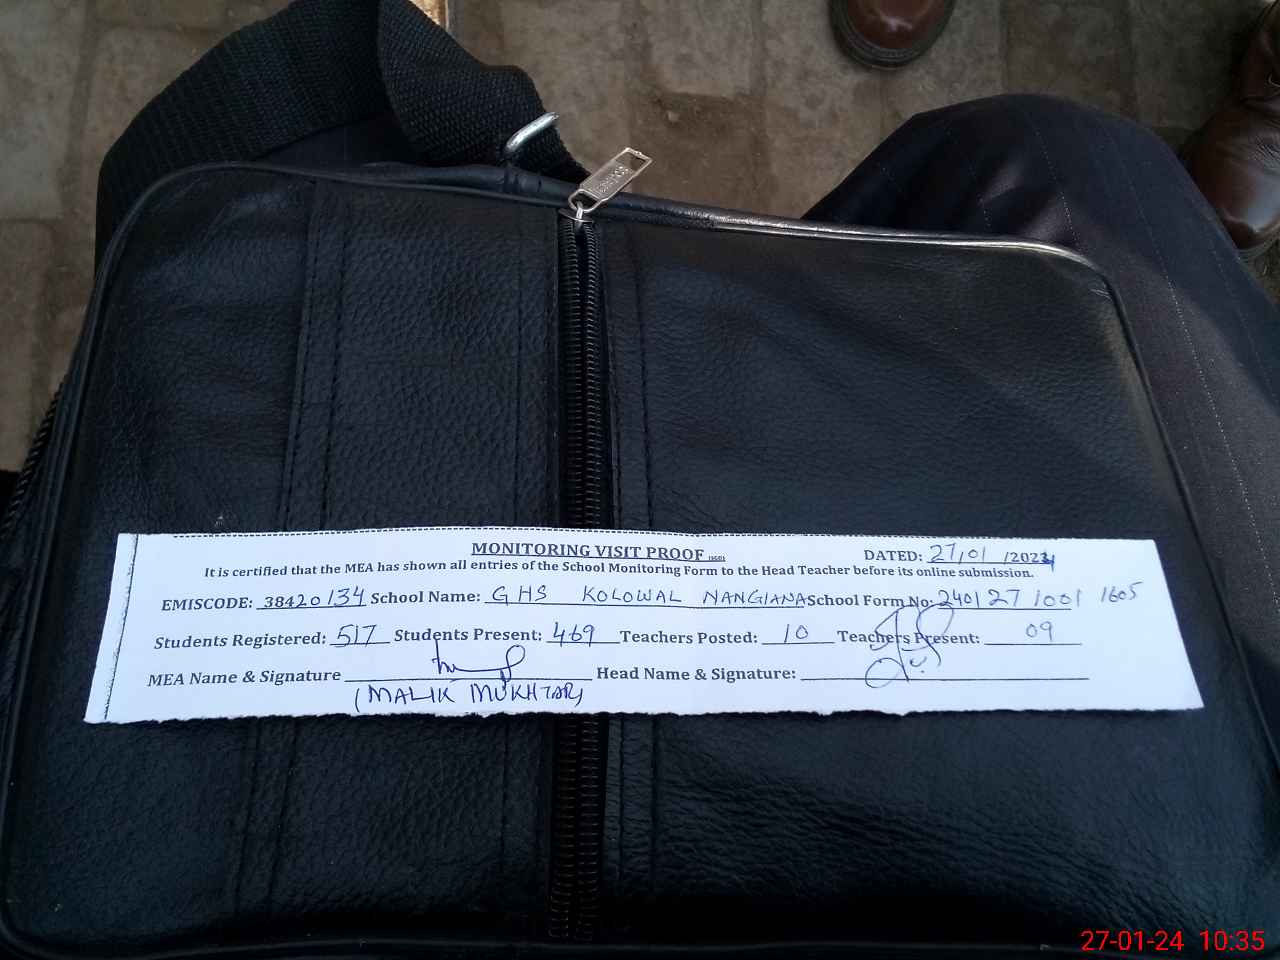 MONITORING VISIT PROOF DATED: 27/01/2024
It is certified that the MEA has shown all entries of the School Monitoring Form to the Head Teacher before its online submission.
EMISCODE: 38420134 School Name: GHS KOLOWAL NANGIANA School Form No: 240127 1001 1605
Students Registered: 517 Students Present: 469 Teachers Posted: 10 Teachers Present: 09
MEA Name & Signature Head Name & Signature:
(MALIK MUKHTAR)
27-01-24 10:35